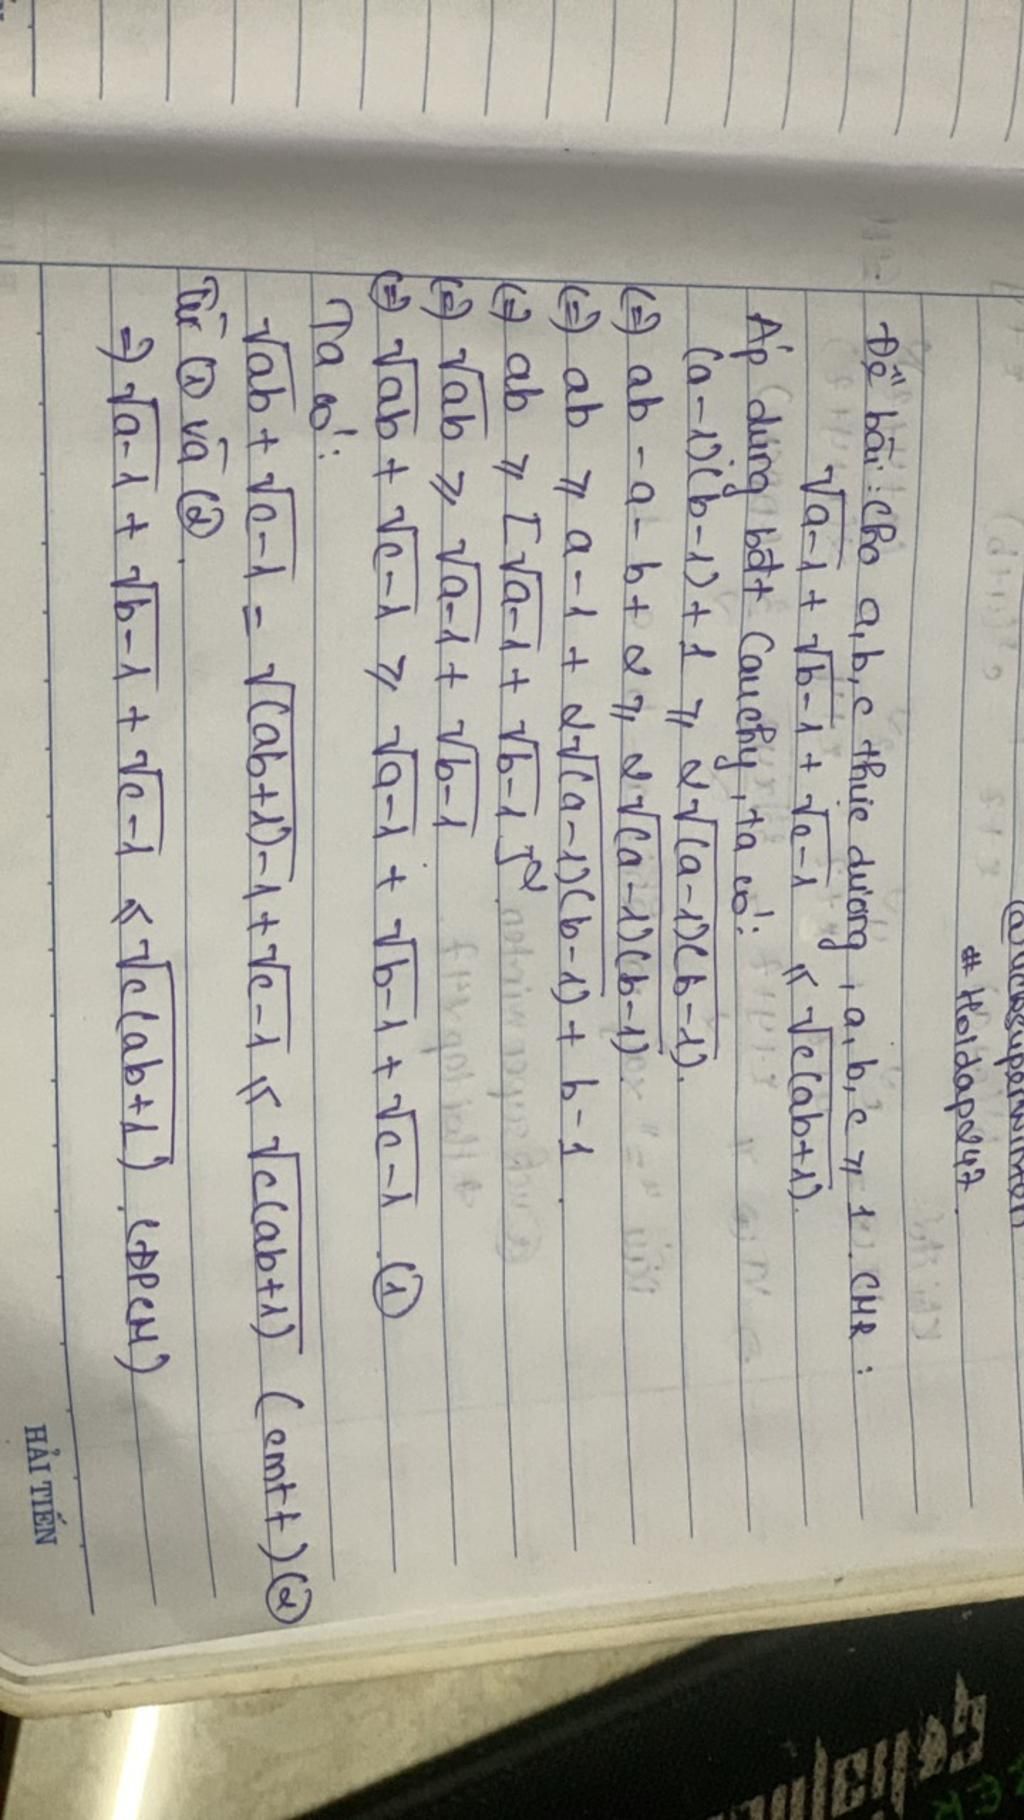 # Hoidap247
Đề bài: Cho a, b, c thực dương, a, b, c ⩾ 1. CMR:
√(a-1) + √(b-1) + √(c-1) ⩽ √(c(ab+1)).
Áp dụng bđt Cauchy, ta có:
(a-1)(b-1)+1 ⩾ 2√((a-1)(b-1)).
(=) ab - a - b + 2 ⩾ 2√((a-1)(b-1))
(=) ab ⩾ a-1 + 2√((a-1)(b-1)) + b-1.
(=) ab ⩾ [√(a-1) + √(b-1)]²
(=) √ab ⩾ √(a-1) + √(b-1)
(=) √ab + √(c-1) ⩾ √(a-1) + √(b-1) + √(c-1). (1)
Ta có:
√ab + √(c-1) = √((ab+1)-1) + √(c-1) ⩽ √(c(ab+1)) (cmtt) (2)
Từ (1) và (2)
=) √(a-1) + √(b-1) + √(c-1) ⩽ √(c(ab+1)) (ĐPCM)
HẢI TIẾN